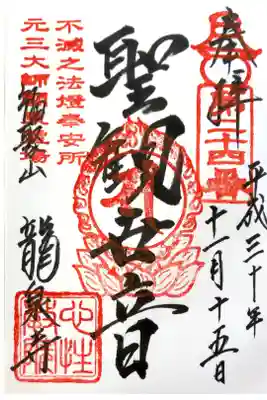 奉拝
二十四番
平成三十年
十一月十五日
聖観世音
不滅之法燈奉安所
元三大師
龍泉寺